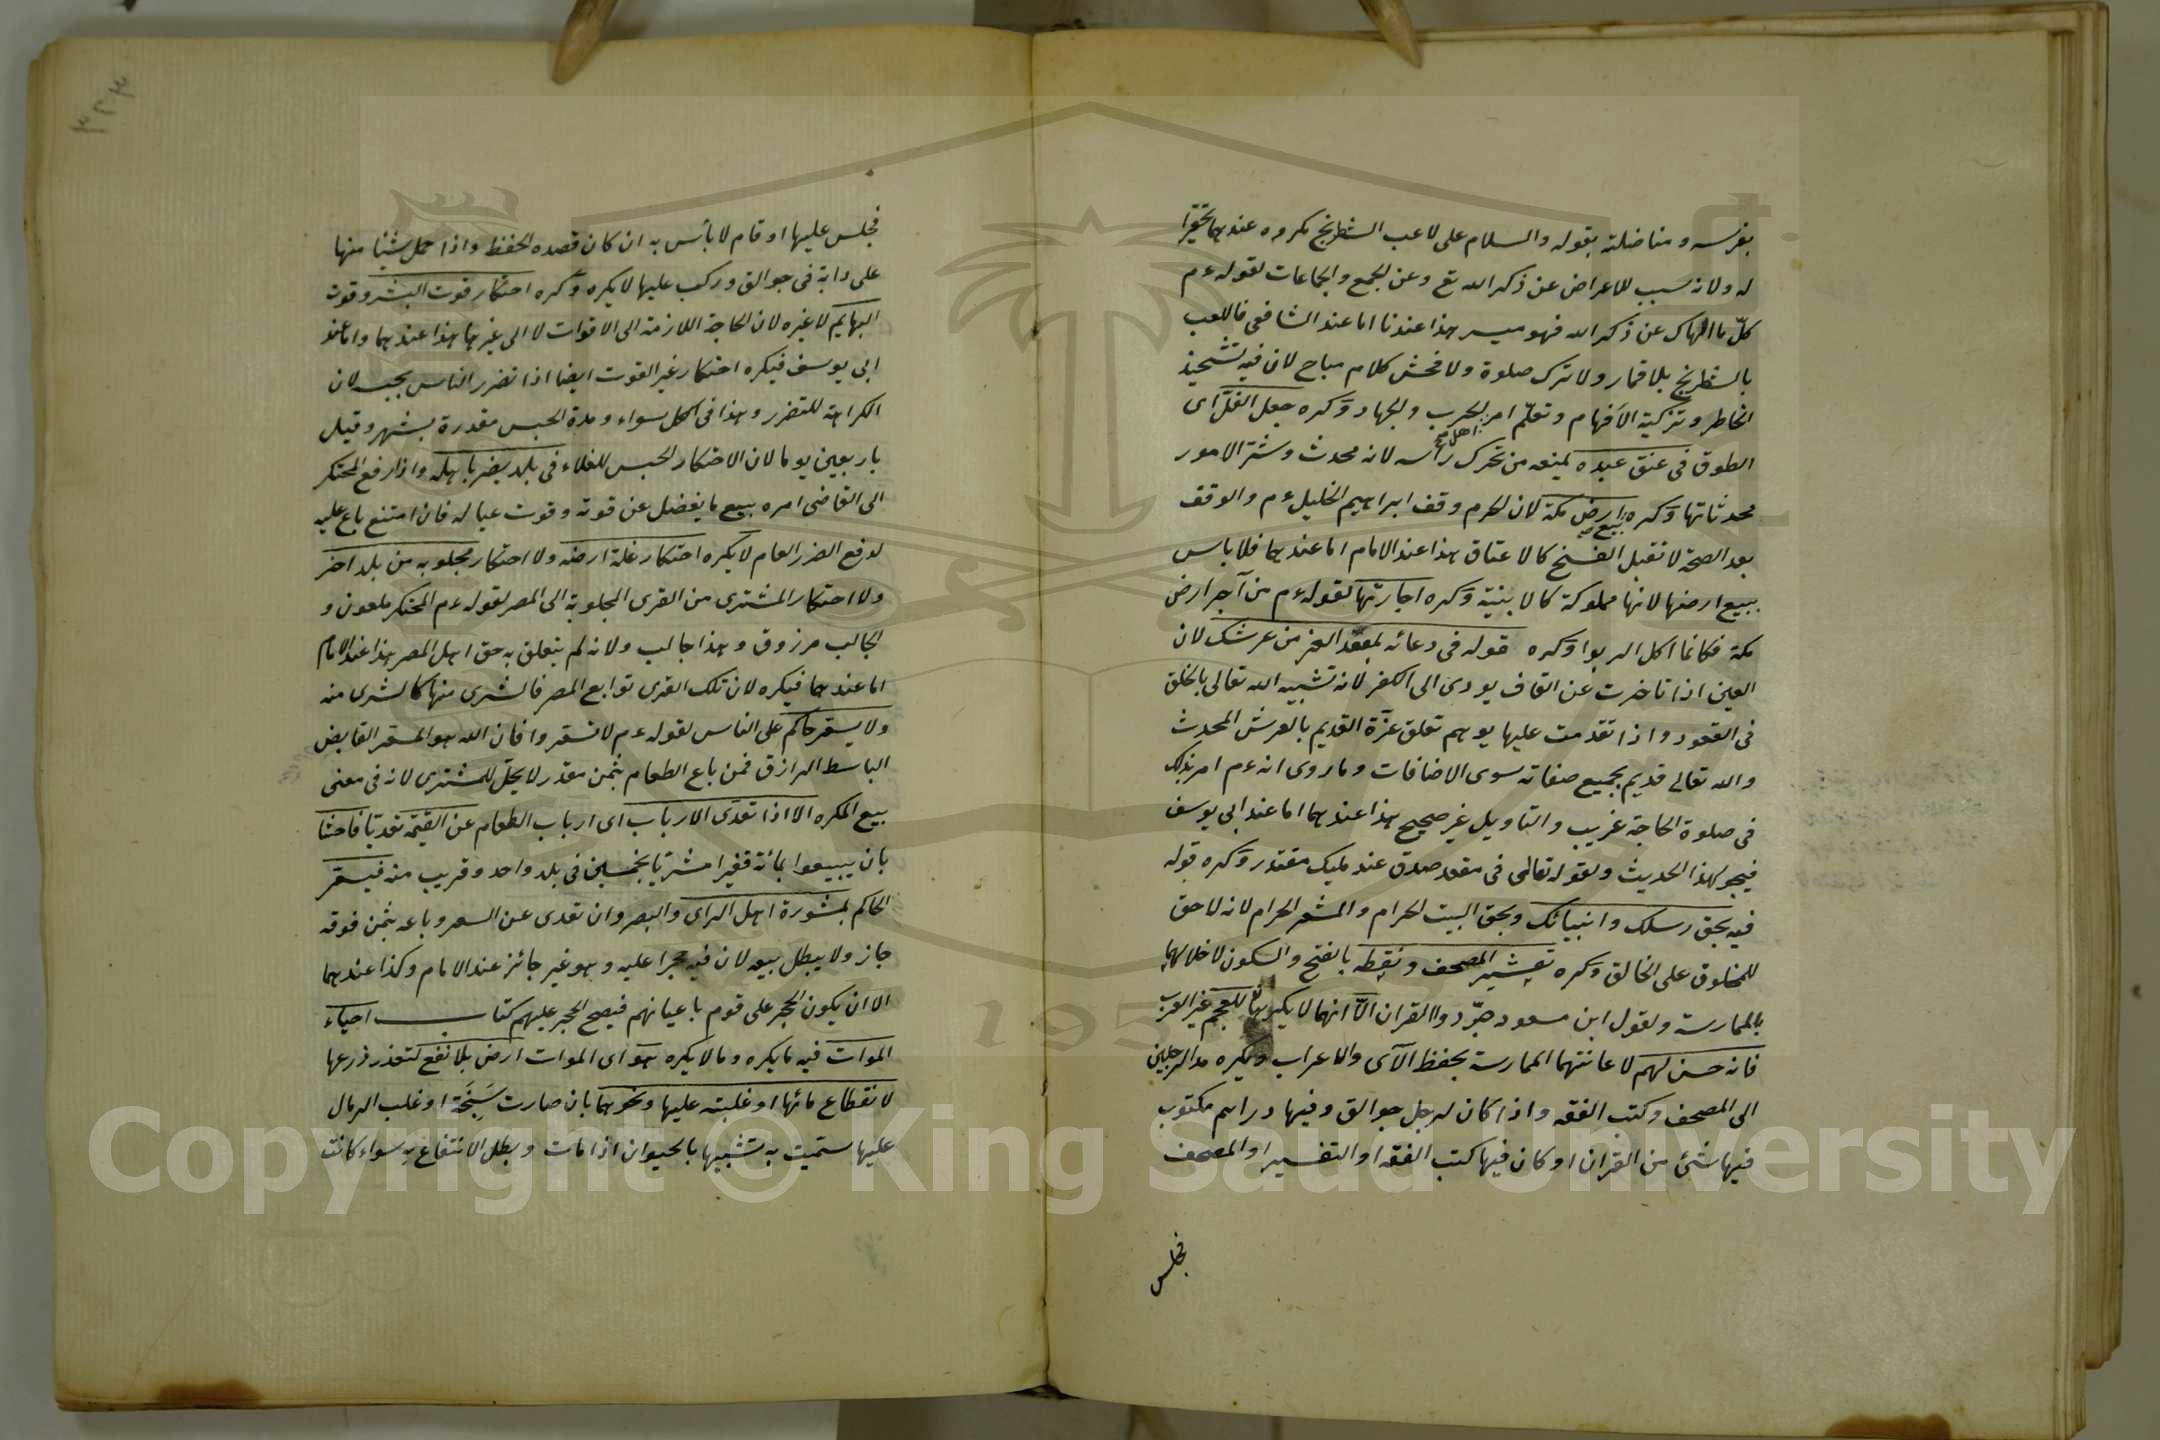 بفرسه ومناضلته بقوله والسلام على لاعب الشطرنج مكروه عندهما تحقيرا
له ولانه سبب للاعراض عن ذكر الله تع وعن الجمع والجماعات لقوله ءم
كلّ ما الهاك عن ذكر الله فهو ميسر هذا عندنا اما عند الشافعى فاللعب
بالشطرنج بلا قمار ولا ترك صلوة ولا فحش كلام مباح لان فيه تشحيذ
الخاطر وتزكية الافهام وتعلّم امر الحرب والجهاد وكره جعل الغلّ اى
الطوق فى عنق عبده يمنعه من تحرك رأسه لانه محدث وشرّ الامور
محدثاتها وكره بيع ارض مكة لان الحرم وقف ابراهيم الخليل ءم والوقف
بعد الصحة لا تقبل الفسخ كالاعتاق هذا عند الامام اما عندهما فلا باس
ببيع ارضها لانها مملوكة كالابنية وكره اجارتها لقوله ءم من آجر ارض
مكة فكانما اكل الربوا وكره قوله فى دعائه بمعقد العز من عرشك لان
العين اذا تاخرت عن القاف يودى الى الكفر لانه تشبيه الله تعالى بالخلق
فى القعود واذا تقدمت عليها يوهم تعلق عزّة القديم بالعرش المحدث
والله تعالى قديم بجميع صفاته سوى الاضافات وما روى انه ءم امر بذلك
فى صلوة الحاجة غريب والتاويل غير صحيح هذا عندهما اما عند ابى يوسف
فيجوز لهذا الحديث ولقوله تعالى فى مقعد صدق عند مليك مقتدر وكره قوله
فيه بحق رسلك وانبيائك وبحق البيت الحرام والمشعر الحرام لانه لا حق
للمخلوق على الخالق وكره تعشير المصحف ونقطه بالفتح والسكون لاخلالهما
بالممارسة ولقول ابن مسعود جرّدوا القران الاّ انهما لا يكرهان للعجم غير العرب
فانه حسن لهم لاعانتهما الممارسة بحفظ الآى والاعراب ويكره مد الرجلين
الى المصحف وكتب الفقه واذا كان لرجل جوالق وفيها دراهم مكتوب
فيها شئ من القران او كان فيها كتب الفقه او التفسير او المصحف
فجلس
فجلس عليها او قام لا بأس به ان كان قصده الحفظ واذا حمل شيئا منها
على دابة فى جوالق وركب عليها لا يكره وكره احتكار قوت البشر وقوت
البهائم لا غيره لان الحاجة اللازمة الى الاقوات لا الى غيرها هذا عندهما واما عند
ابى يوسف فيكره احتكار غير القوت ايضا اذا تضرر الناس بحبسه لان
الكراهة للتضرر وهذا فى الكل سواء ومدة الحبس مقدرة بشهر وقيل
باربعين يوما لان الاحتكار الحبس للغلاء فى بلد يضر باهله واذا رفع المحتكر
الى القاضى امره ببيع ما يفضل عن قوته وقوت عياله فان امتنع باع عليه
لدفع الضرر العام لا يكره احتكار غلة ارضه ولا احتكار مجلوبه من بلد اخر
ولا احتكار المشترى من القرى المجلوبة الى المصر لقوله ءم المحتكر ملعون و
الجالب مرزوق وهذا جالب ولانه لم يتعلق به حق اهل المصر هذا عند الامام
اما عندهما فيكره لان تلك القرى توابع المصر فالشرى منها كالشرى منه
ولا يسعّر حاكم على الناس لقوله ءم لا تسعّروا فان الله هو المسعّر القابض
الباسط الرازق فمن باع الطعام بثمن مقدر لا يحلّ للمشترى لانه فى معنى
بيع المكره الا اذا تعدّى الارباب اى ارباب الطعام عن القيمة تعديّا فاحشا
بان يبيعوا بمائة قفيزا مشتريّا بخمسين فى بلد واحد وقريب منه فيسعّر
الحاكم بمشورة اهل الراى والبصر وان تعدى عن السعر وباعه بثمن فوقه
جاز ولا يبطل بيعه لان فيه حجرا عليه وهو غير جائز عند الامام وكذا عندهما
الا ان يكون الحجر على قوم باعيانهم فيصح الحجر عليهم كتاب احياء
الموات فيه ما يكره وما لا يكره هو اى الموات ارض بلا نفع لتعذر زرعها
لانقطاع مائها او غلبته عليها ونحوهما بان صارت سبخة او غلب الرمال
عليها سمّيت به تشبيها بالحيوان اذا مات وبطل الانتفاع به سواء كانت
Copyright © King Saud University